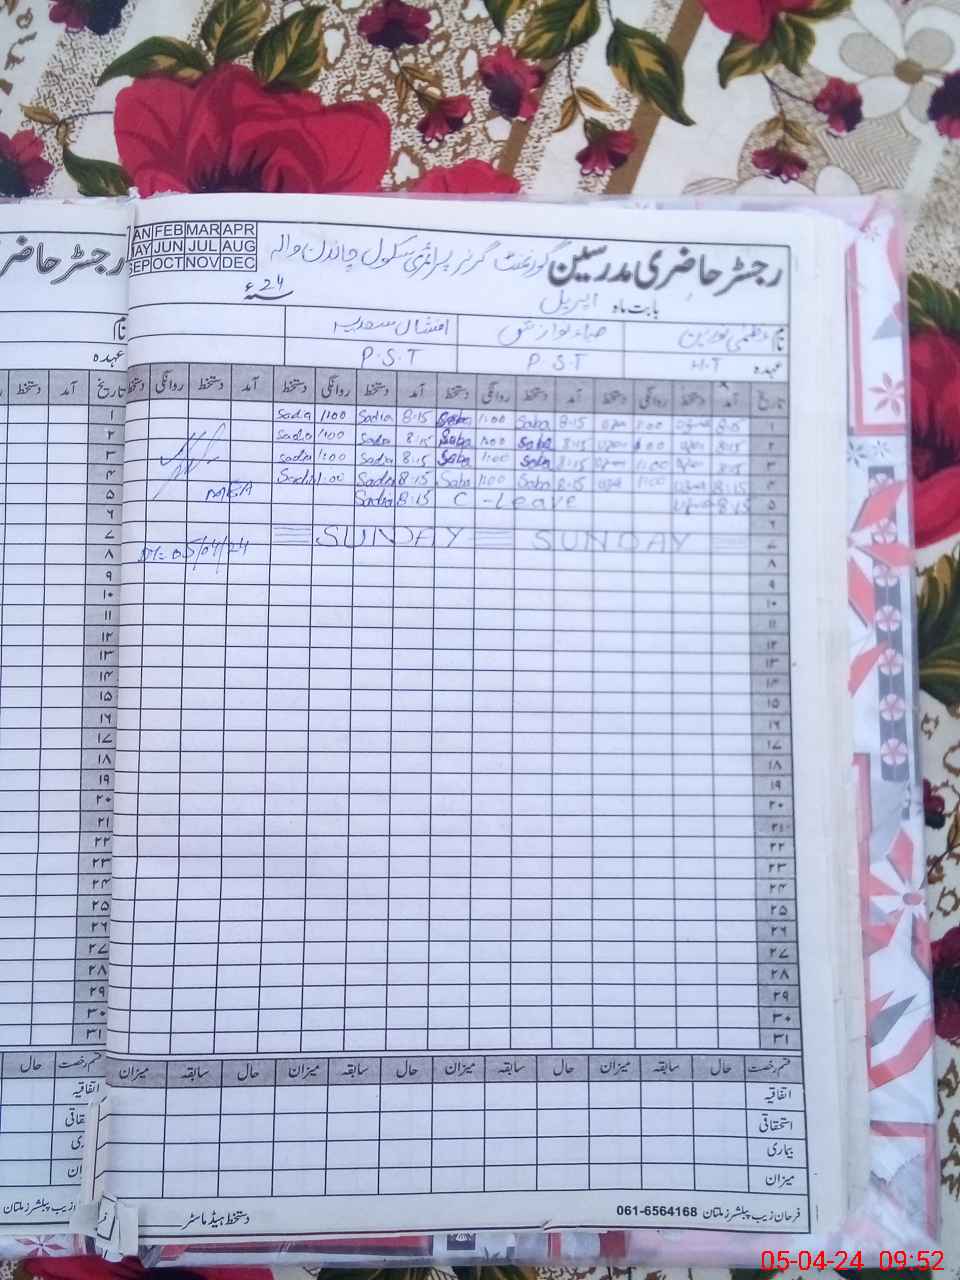 JAN FEB MAR APR
MAY JUN JUL AUG
SEP OCT NOV DEC
رجسٹر حاضری مدرسین گورنمنٹ گرلز پرائمری سکول چاندن والہ
بابت ماہ اپریل سنہ 24ء
نام عظمیٰ نورین صباء نواز
عہدہ H.T P.S.T P.S.T
تاریخ آمد دستخط روانگی دستخط آمد دستخط روانگی دستخط آمد دستخط روانگی دستخط آمد دستخط روانگی دستخط
۱ 8:15 1:00 8:15 Saba 1:00 Saba 8:15 Sadia 1:00 Sadia
۲ 8:15 1:00 8:15 Saba 1:00 Saba 8:15 Sadia 1:00 Sadia
۳ 8:15 1:00 8:15 Saba 1:00 Saba 8:15 Sadia 1:00 Sadia
۴ 8:15 1:00 8:15 Saba 1:00 Saba 8:15 Sadia 1:00 Sadia
MEA
۵ 8:15 C - Leave 8:15 Sadia
۶
۷ SUNDAY SUNDAY
05/04/24
۸
۹
۱۰
۱۱
۱۲
۱۳
۱۴
۱۵
۱۶
۱۷
۱۸
۱۹
۲۰
۲۱
۲۲
۲۳
۲۴
۲۵
۲۶
۲۷
۲۸
۲۹
۳۰
۳۱
قسم رخصت حال سابقہ میزان حال سابقہ میزان حال سابقہ میزان حال سابقہ میزان
اتفاقیہ
استحقاقی
بیماری
میزان
فرحان زیب پبلشرز ملتان 061-6564168 دستخط ہیڈ ماسٹر
رجسٹر حاضر
نام
عہدہ
تاریخ آمد دستخط
۱
۲
۳
۴
۵
۶
۷
۸
۹
۱۰
۱۱
۱۲
۱۳
۱۴
۱۵
۱۶
۱۷
۱۸
۱۹
۲۰
۲۱
۲۲
۲۳
۲۴
۲۵
۲۶
۲۷
۲۸
۲۹
۳۰
۳۱
قسم رخصت حال
اتفاقیہ
زیب پبلشرز ملتان
05-04-24 09:52